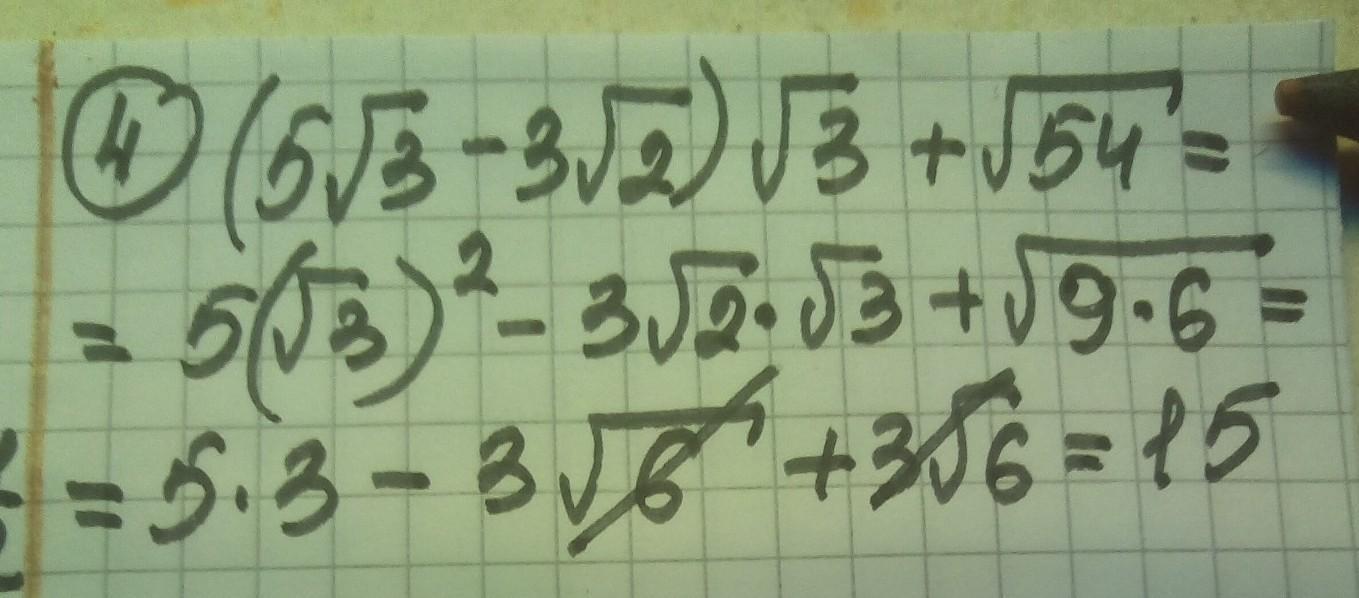 ④ (5√3 - 3√2)√3 + √54 =
= 5(√3)² - 3√2·√3 + √9·6 =
= 5·3 - 3√6 + 3√6 = 15